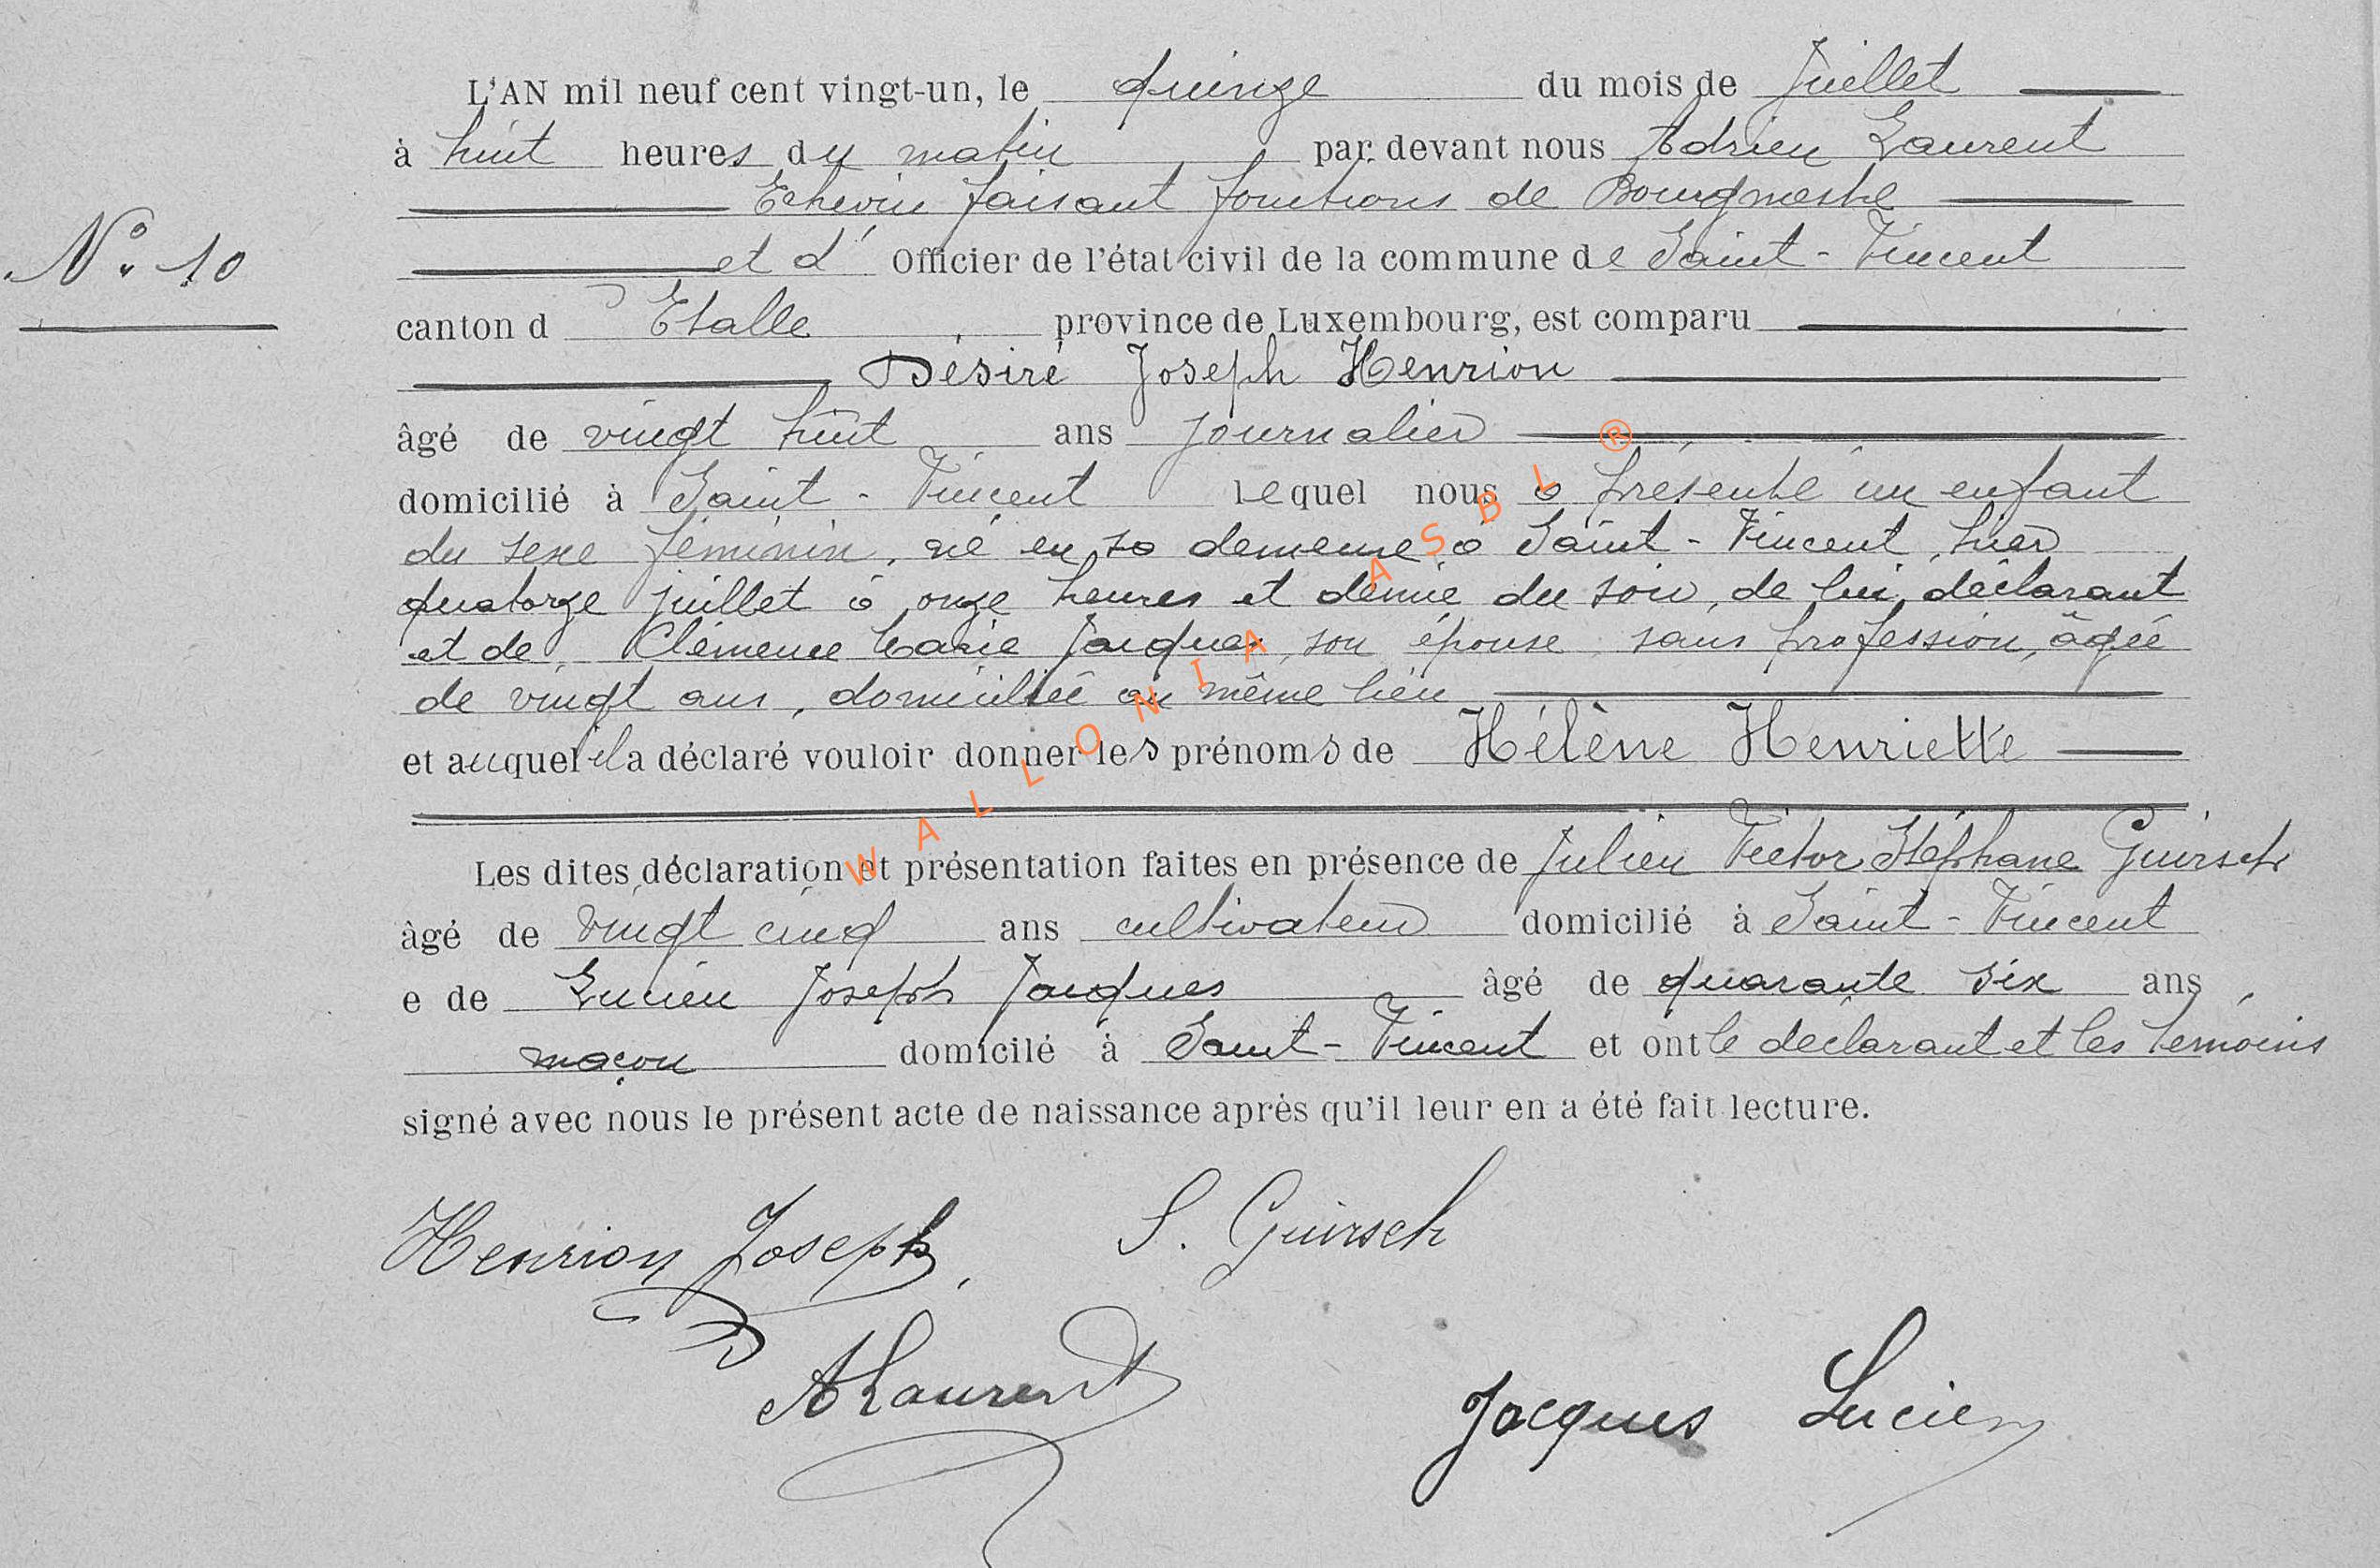 L'AN mil neuf cent vingt-un, le quinze du mois de Juillet
à huit heures du matin par devant nous Adrien Laurent
Echevin faisant fonctions de Bourgmestre
N° 10
et d' Officier de l'état civil de la commune de Saint-Vincent
canton d'Etalle province de Luxembourg, est comparu
Désiré Joseph Henrion
âgé de vingt huit ans journalier
domicilié à Saint-Vincent Lequel nous a présenté un enfant
du sexe féminin, né en sa demeure à Saint-Vincent, hier
quatorze juillet à onze heures et demie du soir, de lui déclarant
et de Clémence Marie Jacques, son épouse sans profession, âgée
de vingt ans, domiciliée au même lieu
et auquel il a déclaré vouloir donner les prénoms de Hélène Henriette
Les dites déclaration et présentation faites en présence de Julien Victor Stéphane Guirsch
âgé de vingt cinq ans cultivateur domicilié à Saint-Vincent
e de Lucien Joseph Jacques âgé de quarante six ans,
maçon domicilé à Saint-Vincent et ont le déclarant et les témoins
signé avec nous le présent acte de naissance après qu'il leur en a été fait lecture.
Henrion Joseph, S. Guirsch
ALaurent
Jacques Lucien
WALLONIA ASBL ®